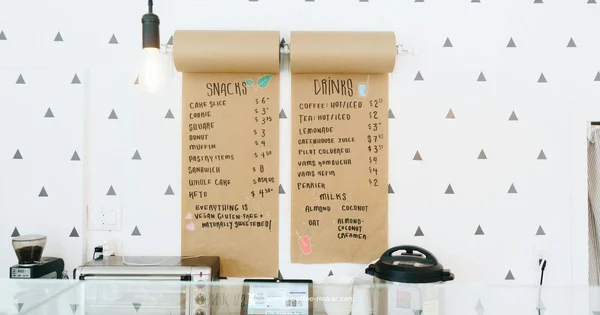 SNACKS
CAKE SLICE $6
COOKIE $3
SQUARE $3
DONUT $3
MUFFIN $4
PASTRY ITEMS $4 50
SANDWICH $8
WHOLE CAKE $ ASK US
KETO $4 50+
EVERYTHING IS
VEGAN GLUTEN-FREE +
NATURALLY SWEETENED!
DRINKS
COFFEE: HOT/ICED $2
TEA: HOT/ICED $2
LEMONADE $3
GREENHOUSE JUICE $7
PILOT COLDBREW $3
VAMS KOMBUCHA $4
VAMS KEFIR $4
PERRIER $2
MILKS
ALMOND COCONUT
OAT ALMOND-
COCONUT
CREAMER